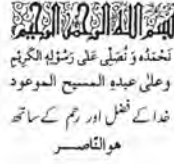 بسم الله الرحمن الرحيم
نَحْمَدُهٗ وَ نُصَلِّی عَلٰی رَسُوْلِهِ الْکَرِیْمِ
وعلیٰ عبدہِ المسیح الموعود
خدا کے فضل اور رحم کے ساتھ
ھوالنّاصر